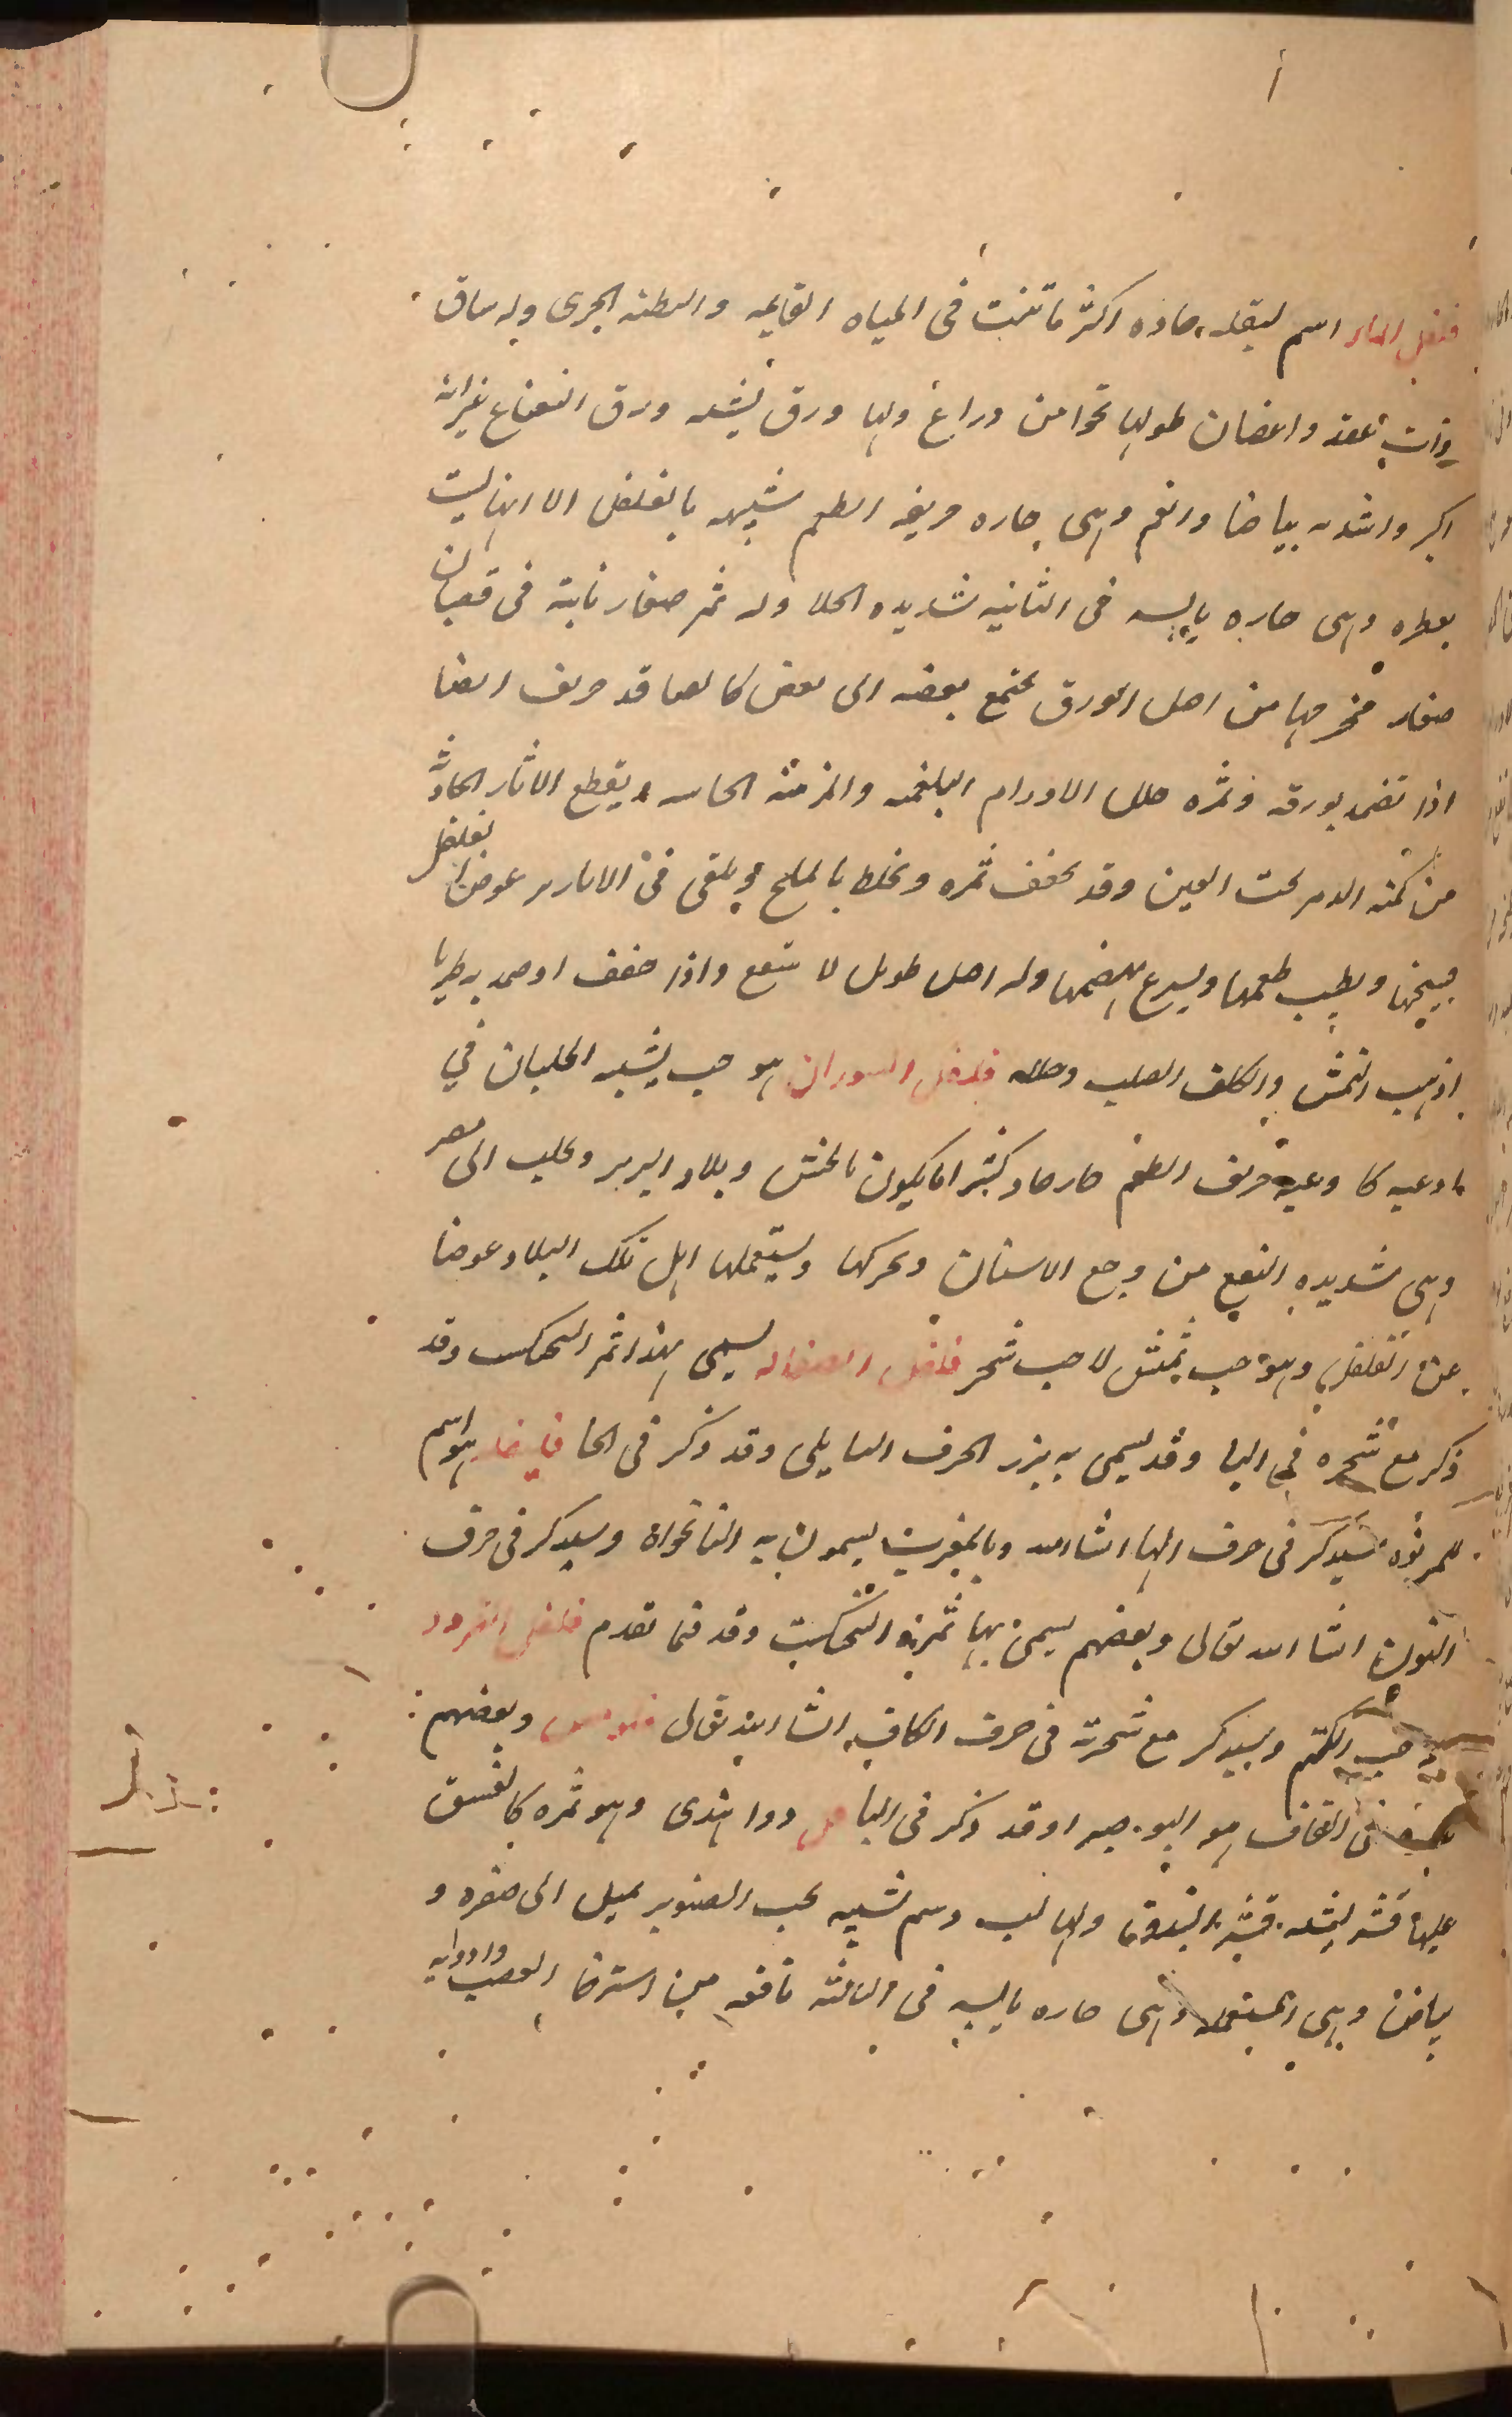 فلفل الماء اسم لبقلة حاده اكثر ما تنبت فى المياه القايمه والبطئه الجرى وله ساق
ذات عقد واغصان طولها نحوا من ذراع ولها ورق يشبه ورق النعناع غير انه
اكبر واشد بياضا وانعم وهى حاره حريفه الطعم شبيهه بالفلفل الا انها ليست
بعطره وهى حاره يابسه فى الثانيه شديده الجلا وله ثمر صغار نابته فى قضبان
صغار مخرجها من اصل الورق يجتمع بعضه الى بعض كالعناقد حريف ايضا
اذا تضمد بورقه وثمره حلل الاورام البلغميه والمزمنه الجاسيه ويقطع الاثار الحادثه
من كمنه الدم تحت العين وقد يجفف ثمره ويخلط بالملح ويلقى فى الابازير عوضا لفلفل
فيسخنها ويطيب طعمها ويسرع هضمها وله اصل طويل لا ينفع واذا جفف او ضمد به طريا
اذهب النمش والكلف الصلب وحلله فلفل السودان هو حب يشبه الجلبان في
اوعيه كاوعيه حريف الطعم حار حاد كثيرا ما يكون بالحبش وبلاد البربر ويجلب الى مصر
وهى شديده النفع من وجع الاسنان وتحركها ويستعملها اهل تلك البلاد عوضا
عن الفلفل وهو حب لا حب شجر فلفل الصقاله يسمى بهذا ثمر البنجكست وقد
ذكر مع شجره فى البا وقد يسمى به بزر الحرف البابلى وقد ذكر فى الحا هو اسم
للمرنوه سيذكر فى حرف الها انشاالله وبالمغرب يسمون به النانخواه وسيذكر فى حرف
النون انشاالله تعالى وبعضهم يسمى بها ثمرة البنجكست وقد فيما تقدم فلفل القرود
حب الكتم وسيذكر مع شجرته فى حرف الكاف انشاالله تعالى وبعضهم
القاف هو البو. وقد ذكر فى البا فل دوا هندى وهو ثمره كالفستق
عليها قشر يشبه قشر البندق ولها لب دسم شبيه بحب الصنوبر يميل الى صفره و
بياض وهى المستعمله وهى حاره يابسه فى الثالثه نافعه من استرخا العصب وادوايه